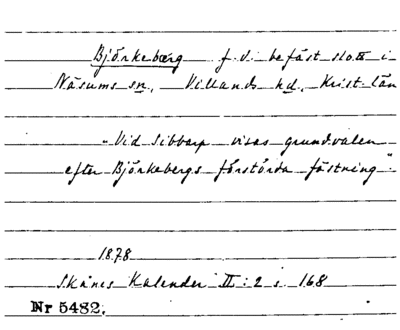 Björkeberg f.d. befäst slott i
Näsums sn, Villands hd, Krist. län
"Vid Sibbarp visas grundvalen
efter Björkebergs förstörda fästning".
1878
Skånes Kalender II:2 s. 168
Nr 5482.